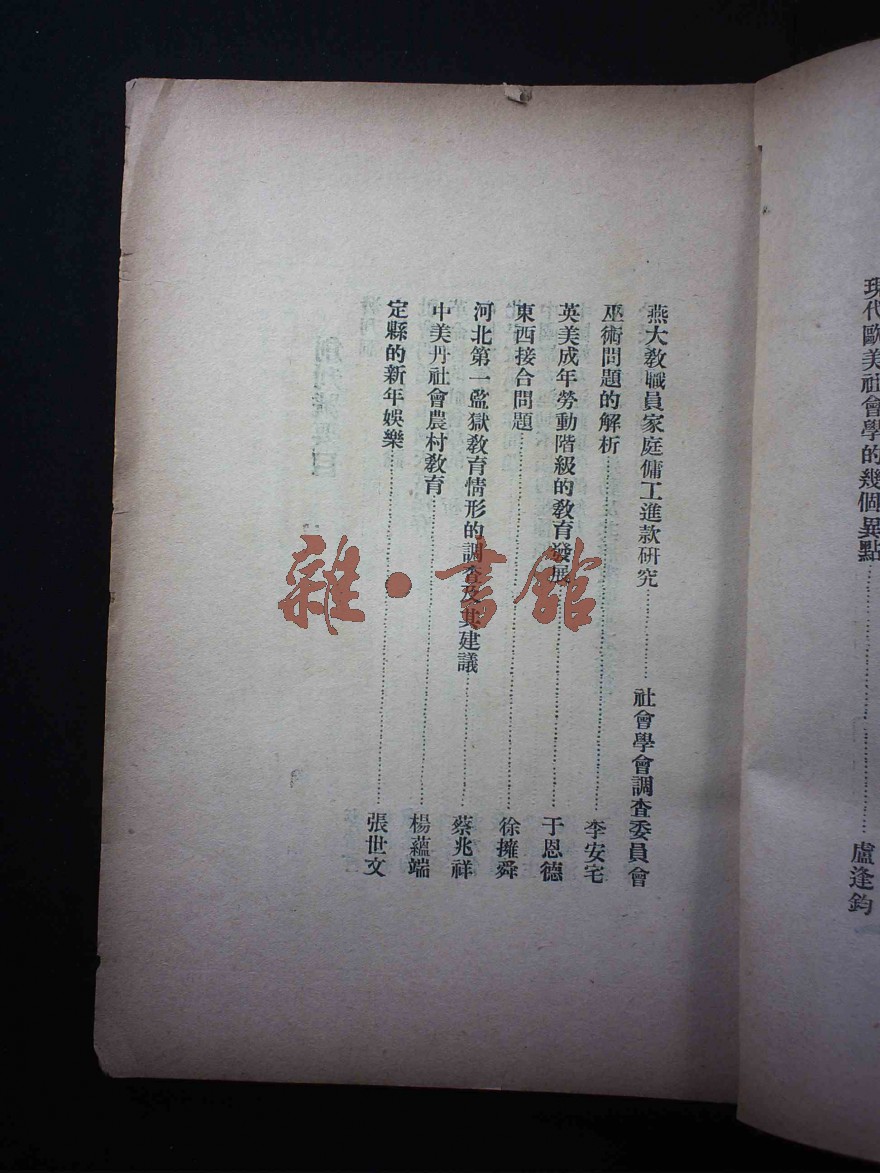 現代歐美社會學的幾個異點……盧逢鈞
燕大教職員家庭傭工進款研究……社會學會調查委員會
巫術問題的解析……李安宅
英美成年勞動階級的教育發展……于恩德
東西接合問題……徐擁舜
河北第一監獄教育情形的調查及其建議……蔡兆祥
中美丹社會農村教育……楊蘊端
定縣的新年娛樂……張世文
雜·書館